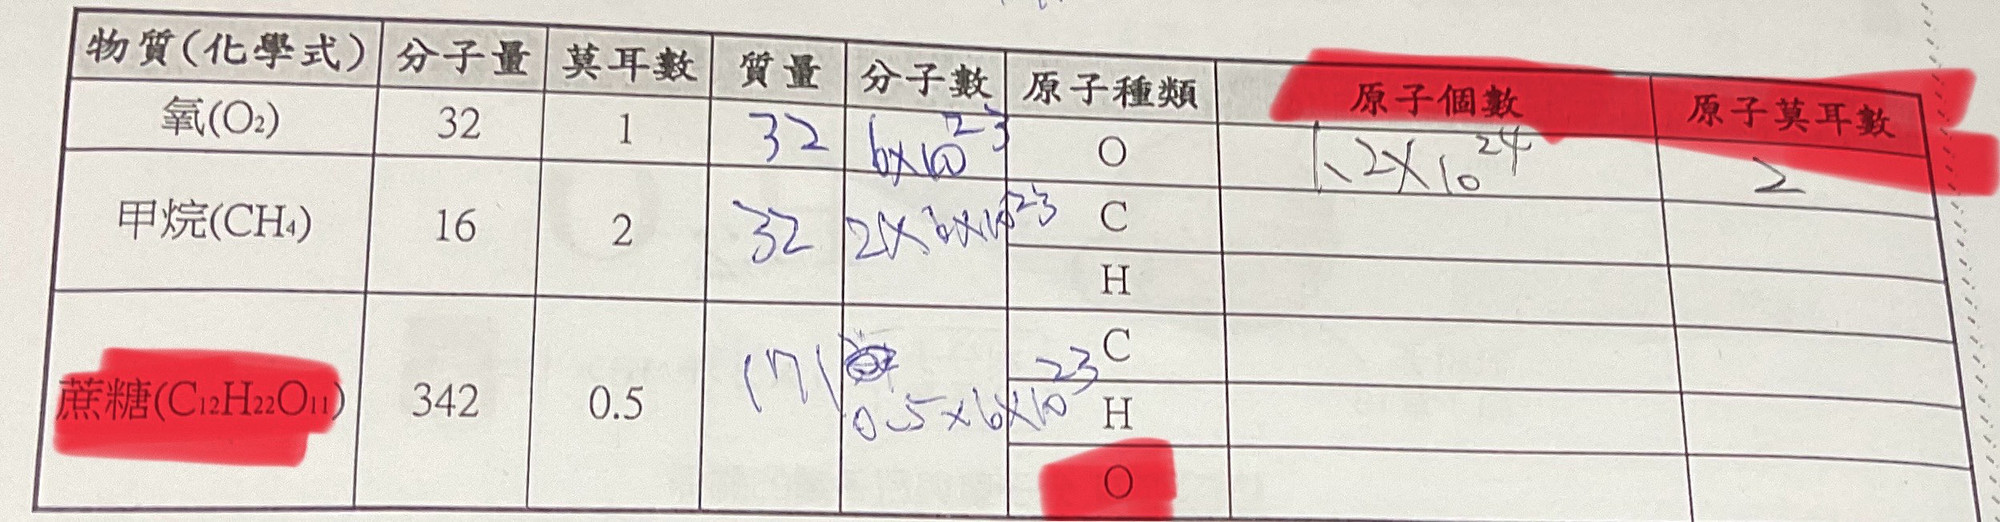 物質(化學式) 分子量 莫耳數 質量 分子數 原子種類 原子個數 原子莫耳數
氧(O₂) 32 1 32 6×10²³ O 1.2×10²⁴ 2
甲烷(CH₄) 16 2 32 2×6×10²³ C
H
C
蔗糖(C₁₂H₂₂O₁₁) 342 0.5 171 0.5×6×10²³ H
O